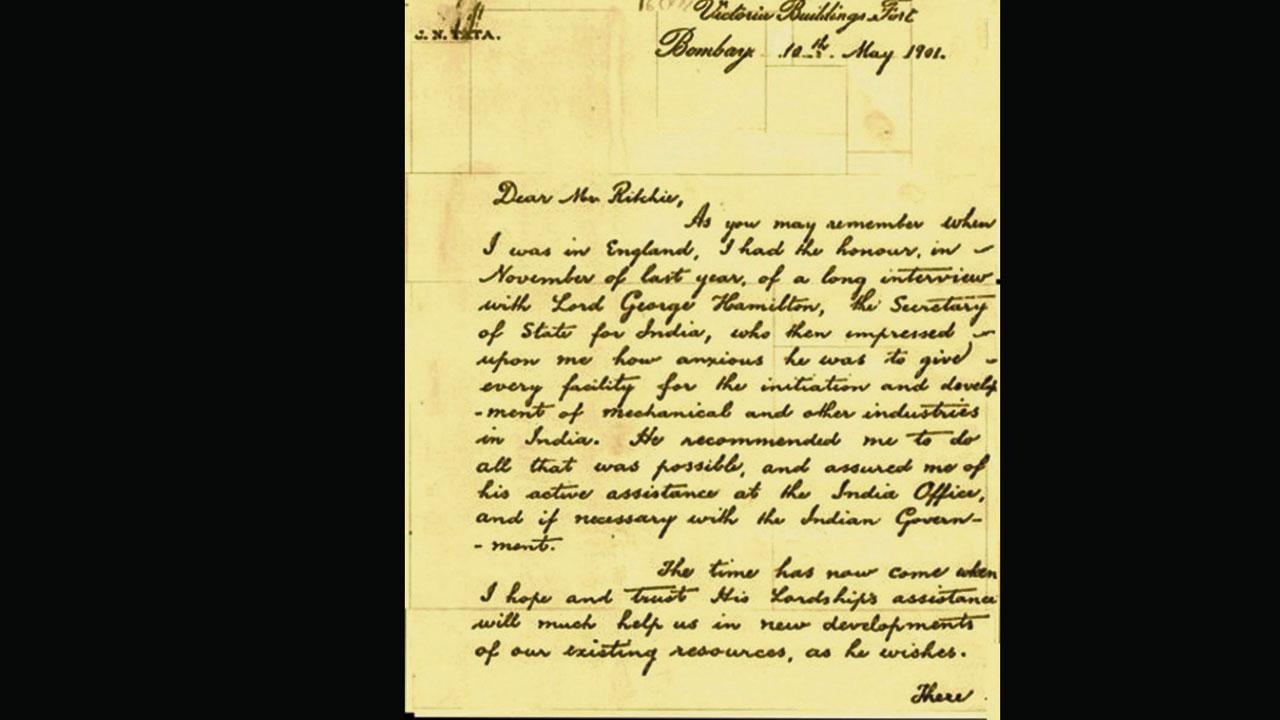 J. N. TATA.
Victoria Buildings, Fort
Bombay, 10th. May 1901.
Dear Mr. Ritchie,
As you may remember when
I was in England, I had the honour, in
November of last year, of a long interview
with Lord George Hamilton, the Secretary
of State for India, who then impressed
upon me how anxious he was to give
every facility for the initiation and develop
-ment of mechanical and other industries
in India. He recommended me to do
all that was possible, and assured me of
his active assistance at the India Office,
and if necessary with the Indian Govern-
-ment.
The time has now come when
I hope and trust His Lordship's assistance
will much help us in new developments
of our existing resources, as he wishes.
There